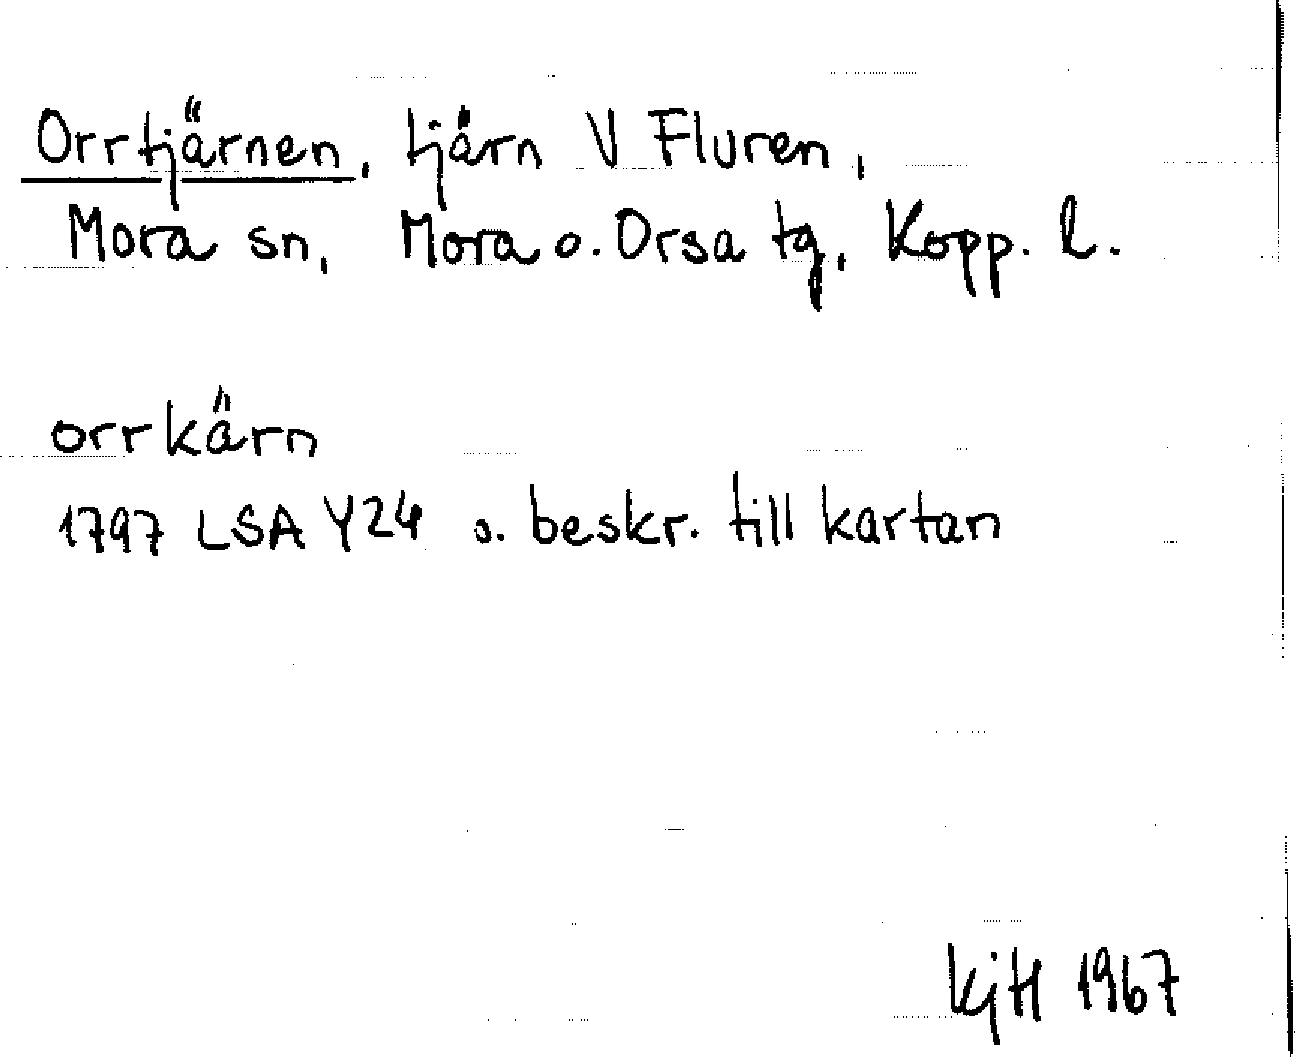 Orrtjärnen, tjärn V Fluren,
Mora sn, Mora o. Orsa tg, Kopp. l.
orrkärn
1797 LSA Y24 s. beskr. till kartan
KjH 1967